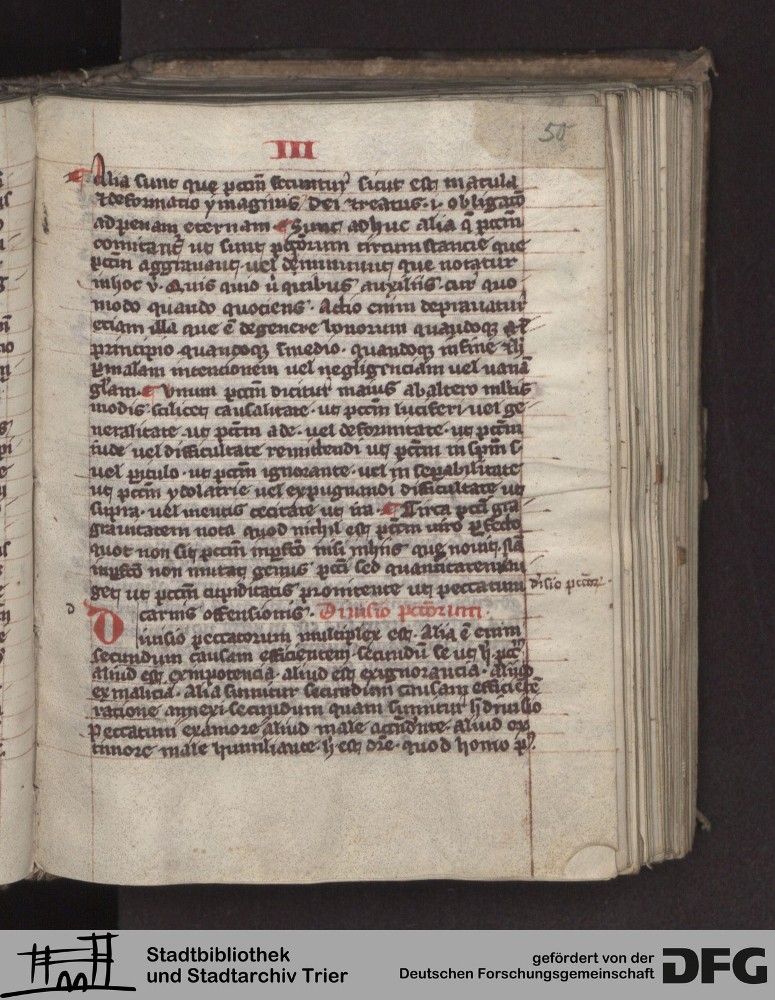 50
III
Alia sunt que pctm secuntur sicut est macula
et deformatio ymaginis dei et reatus .i. obligatio
ad penam eternam Sunt adhuc alia q pctm
comitant ut sunt pctorum circumstancie que
pctm aggravant vel deminuunt que notatur
in hoc v. Quis quid u quibus auxiliis cur quo
modo quando quociens. Actio enim depravatur
etiam illa que e de genere bonorum quandoq
principio quandoq i medio. quandoq in fine
p malam intencionem vel negligenciam vel vanā
glam. Unum pctm dicitur maius ab altero multis
modis. scilicet causalitate. ut pctm luciferi vel ge
neralitate ut pctm ade. vel deformitate. ut pctm
iude vel difficultate remittendi ut pctm in spm s.
vel piculo. ut pctm ignorante. vel inseperabilitate
ut pctm ydolatrie vel expugnandi difficultate ut
supra. vel mentis cecitate ut ira. Circa pcti
gravitatem nota quod nichil est pctm viro pfecto
quot non sit pctm impfcto nisi in hiis que novit.
impfcto non mutat genus pcti sed quantitatem
get ut pctm cupiditatis pronitente ut peccatum
disio pctor.
carnis offensionis. Divisio pctorum.
d
Divisio peccatorum multiplex est. Alia e enim
secundum causam efficientem. secundū se ut
aliud est ex impotencia. aliud est ex ignorancia. aliud
ex malicia. Alia sumitur secundum causam efficiētē
racione annexi. secundum quam sumitur h divisio
Peccatum ex amore aliud male aliud ex
timore male humiliante. h est dre. quod homo
Stadtbibliothek
und Stadtarchiv Trier
gefördert von der
Deutschen Forschungsgemeinschaft
DFG